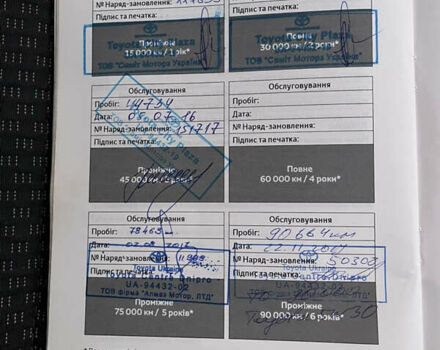 № Наряд-замовлення:
№ Наряд-замовлення:
Підпис та печатка:
Підпис та печатка:
Toyota City Plaza
Проміжне
15 000 км / 1 рік*
ТОВ "Саміт Моторз Україна"
Toyota City Plaza
Повне
30 000 км / 2 роки*
ТОВ "Саміт Моторз Україна"
Обслуговування
Пробіг: 44734
Дата: 07 16
№ Наряд-замовлення: 151717
Підпис та печатка:
Toyota City Plaza
Проміжне
45 000 км / 3 роки*
Обслуговування
Пробіг:
Дата:
№ Наряд-замовлення:
Підпис та печатка:
Повне
60 000 км / 4 роки*
Обслуговування
Пробіг: 78463
Дата: 2017
№ Наряд-замовлення:
Підпис
Toyota Ukraine
Toyota Centre Dnipro
UA-94432-02
ТОВ фірма "Алмаз Мотор, ЛТД"
Проміжне
75 000 км / 5 років*
Обслуговування
Пробіг: 90664 км
Дата: 22.11.2017
№ Наряд-замовлення: 50302
Підпис
Toyota Ukraine
Toyota Centre Dnipro
UA-94432-02
Проміжне
90 000 км / 6 років*